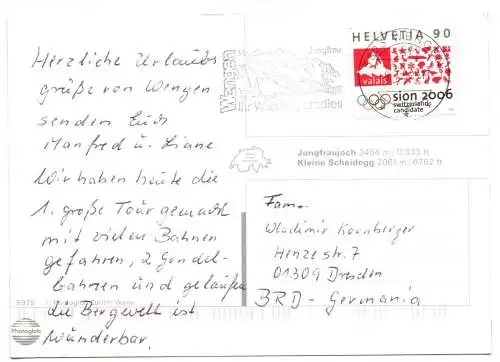 Herzliche Urlaubs
grüße von Wengen
senden Euch
Manfred u. Liane
Wir haben heute die
1. große Tour gemacht
mit vielen Bahnen
gefahren, 2 Gondel-
bahnen und gelaufen
die Bergwelt ist
wunderbar.
5979
Photoglob
Wengen
Jungfrau
HELVETIA 90
valais
sion 2006
switzerland
candidate
Jungfraujoch 3454 m/11333 h.
Kleine Scheidegg 2061 m/6762 h.
Fam.
Wladimir Kornberger
Henzestr. 7
01309 Dresden
BRD - Germania